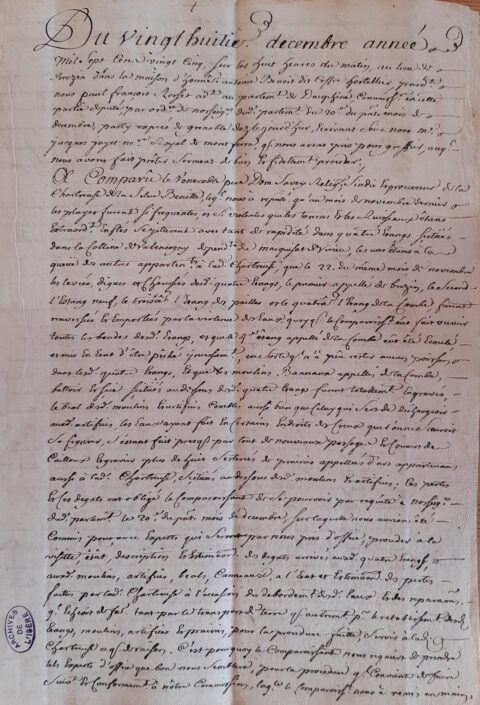 Du vingthuitie. decembre année
Mil Sept Cens vingt Cinq, Sur les huit heures du matin, au lieu de
dans la maison d'honnete antoine Benoit dit Cesse hostellier
nous paul françois Rosset ad. au parlement de Dauphiné Commre en cette
partie deputé, par ord. de nosseig. dud. parlemt. du 20e. du pnt. mois de
decembre, party exprés de grenoble, Ecrivant Sous nous Me.
jacques jayet no. Royal de mont ferra, qe. nous avons pris pour greffier, auql.
nous avons fait préter Serment de bien, & fidelemt. proceder.
A Comparû le Venerable pere Dom Religx. Sindic & procureur de la
Chartreuse de la Silve Benitte, leql. nous a repnté. qu'au mois de novembre dernier
les pluyes furent Si frequentes, et Si violentes que les torrens & les Ruisseaux étans
enflés Se jetterent avec tant de rapidité dans quatre Etangs Scitués
dans la Colline de depend. du marquisat de Virieu, les uns étans à la
queue des autres appartent. à lad. Chartreuse, que le 22. du méme mois de novembre
les levées, digues et Chaussées desd. quatre Etangs, le premier appellé de le Second
l'Etang neuf, le troisie. l'Etang des pailles et le quatrie. l'Etang de la Combe, furent
renversées & Emportées par la violence des Eaux, quoyq. le Comparoisst. eut fait ouvrir
toutes les bondes desd. Etangs, et que le 4e. étang appellé de la Combe eut été
et mis en Etat d'être peché en Sorte qu'il n'a pû rester aucun poisson
dans lesd. quatre Etangs, & que les moulins, Bannaux appellés de la Combe,
battoir & Scie Scitués au dessous desd. quatre Etangs furent totallemt. Engravés,
le beal desd. moulins & artifices Comblés aussi bien que Celuy qui Sert de déchargeoir
auxd. artifices, les Eaux ayant fait en Certains Endroits des Creux que l'on ne Sauroit
Se figurer, S'étant fait presqe. par tout de nouveaux passages & Couvert de
Cailloux & graviers plus de huit Sesterées de prairies appellées d'ars appartenant
aussi à lad. Chartreuse, Scituées au dessous desd. moulins & artifices; les pertes
& Ces degats ont obligé le Comparoissant de Se pourvoir par requéte à nosseigrs.
dud. parlemt. le 20e. du pnt. mois de decembre sur laquelle nous aurions été
Commis pour avec Experts qui Seront par nous pris d'office, proceder à la
visitte, état, description & Estimaon. des degats arrivés auxd. quatre Etangs &
auxd. moulins, artifices, beals, Cannaux, à l'état et Estimaon. des pertes
faites par lad. Chartreuse à l'occasion du debordemt. desd. Eaux & des reparaons.
qe. à faire tant par le transport de terre qu'autremt. pr. le retablissemt. desd.
Etangs, moulins, artifices & prairies, pour la procedure faitte Servir à lad.
Chartreuse C'est pourquoy le Comparoissant nous requiert de prendre
tels Experts d'office que bon nous Semblera, pour la procedure qe. Convient de faire
Suivt. & Conformemt. à nôtre Commission, laqle. le Comparoisst. nous à remis en mains,
ARCHIVES DE L'ISÈRE